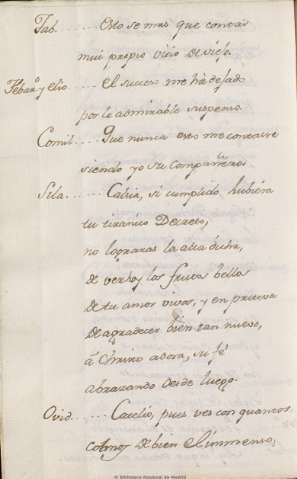 Fab......Esto se mas que contais
mui propio vicio de viejo.
Tebanº y Elio.....El suceso me ha dejado
por lo admirable suspenso.
Comil....Que nunca esto me contase
siendo yo su compañero!
Sila......Celia, si cumplido hubiera
tu tiranico Decreto,
no lograras la alta dicha,
de verlos los frutos bellos
de tu amor vivos, y en prueva
de agradecer bien tan nuevo,
á Christo adora, su fé
abrazando desde luego.
Ovid......Cecilio, pues ves con quantos
colmos de bien el immenso,
© Biblioteca Nacional de España